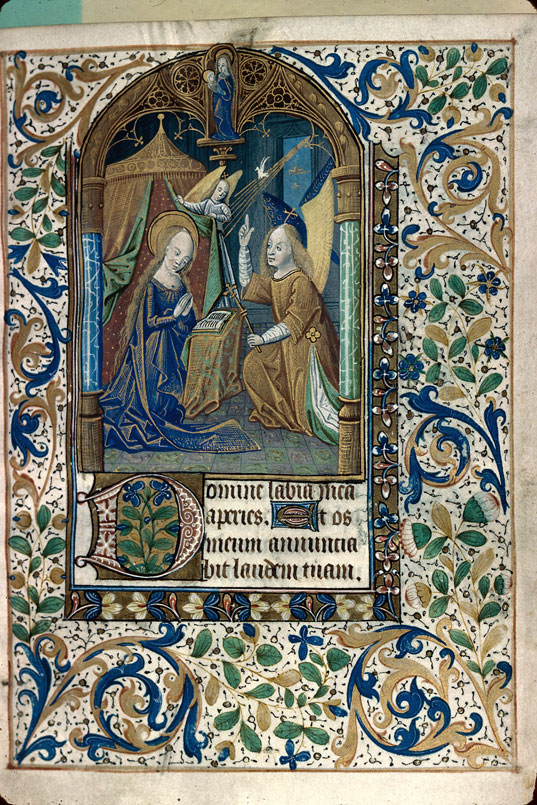 Domine labia mea
aperies. Et os
meum annuncia
bit laudem tuam.